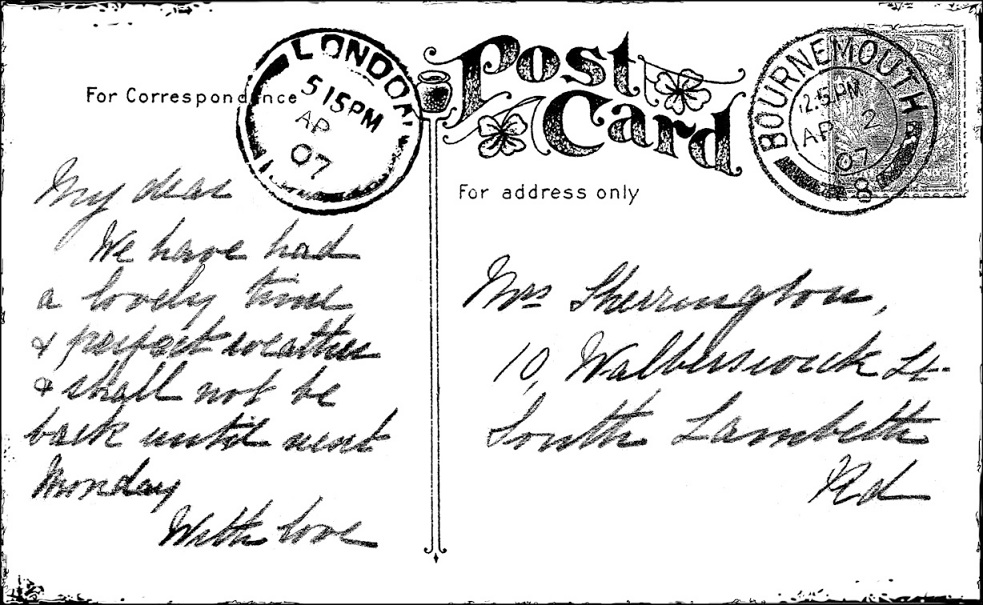 Post
Card
For Correspondence
For address only
LONDON
5 15PM
AP
07
BOURNEMOUTH
12.5.PM
AP 2
07
8
My dear
We have had
a lovely time
& perfect weather
& shall not be
back until next
Monday
With love
Mrs Sherrington,
10, Walberswick St.
South Lambeth
Rd